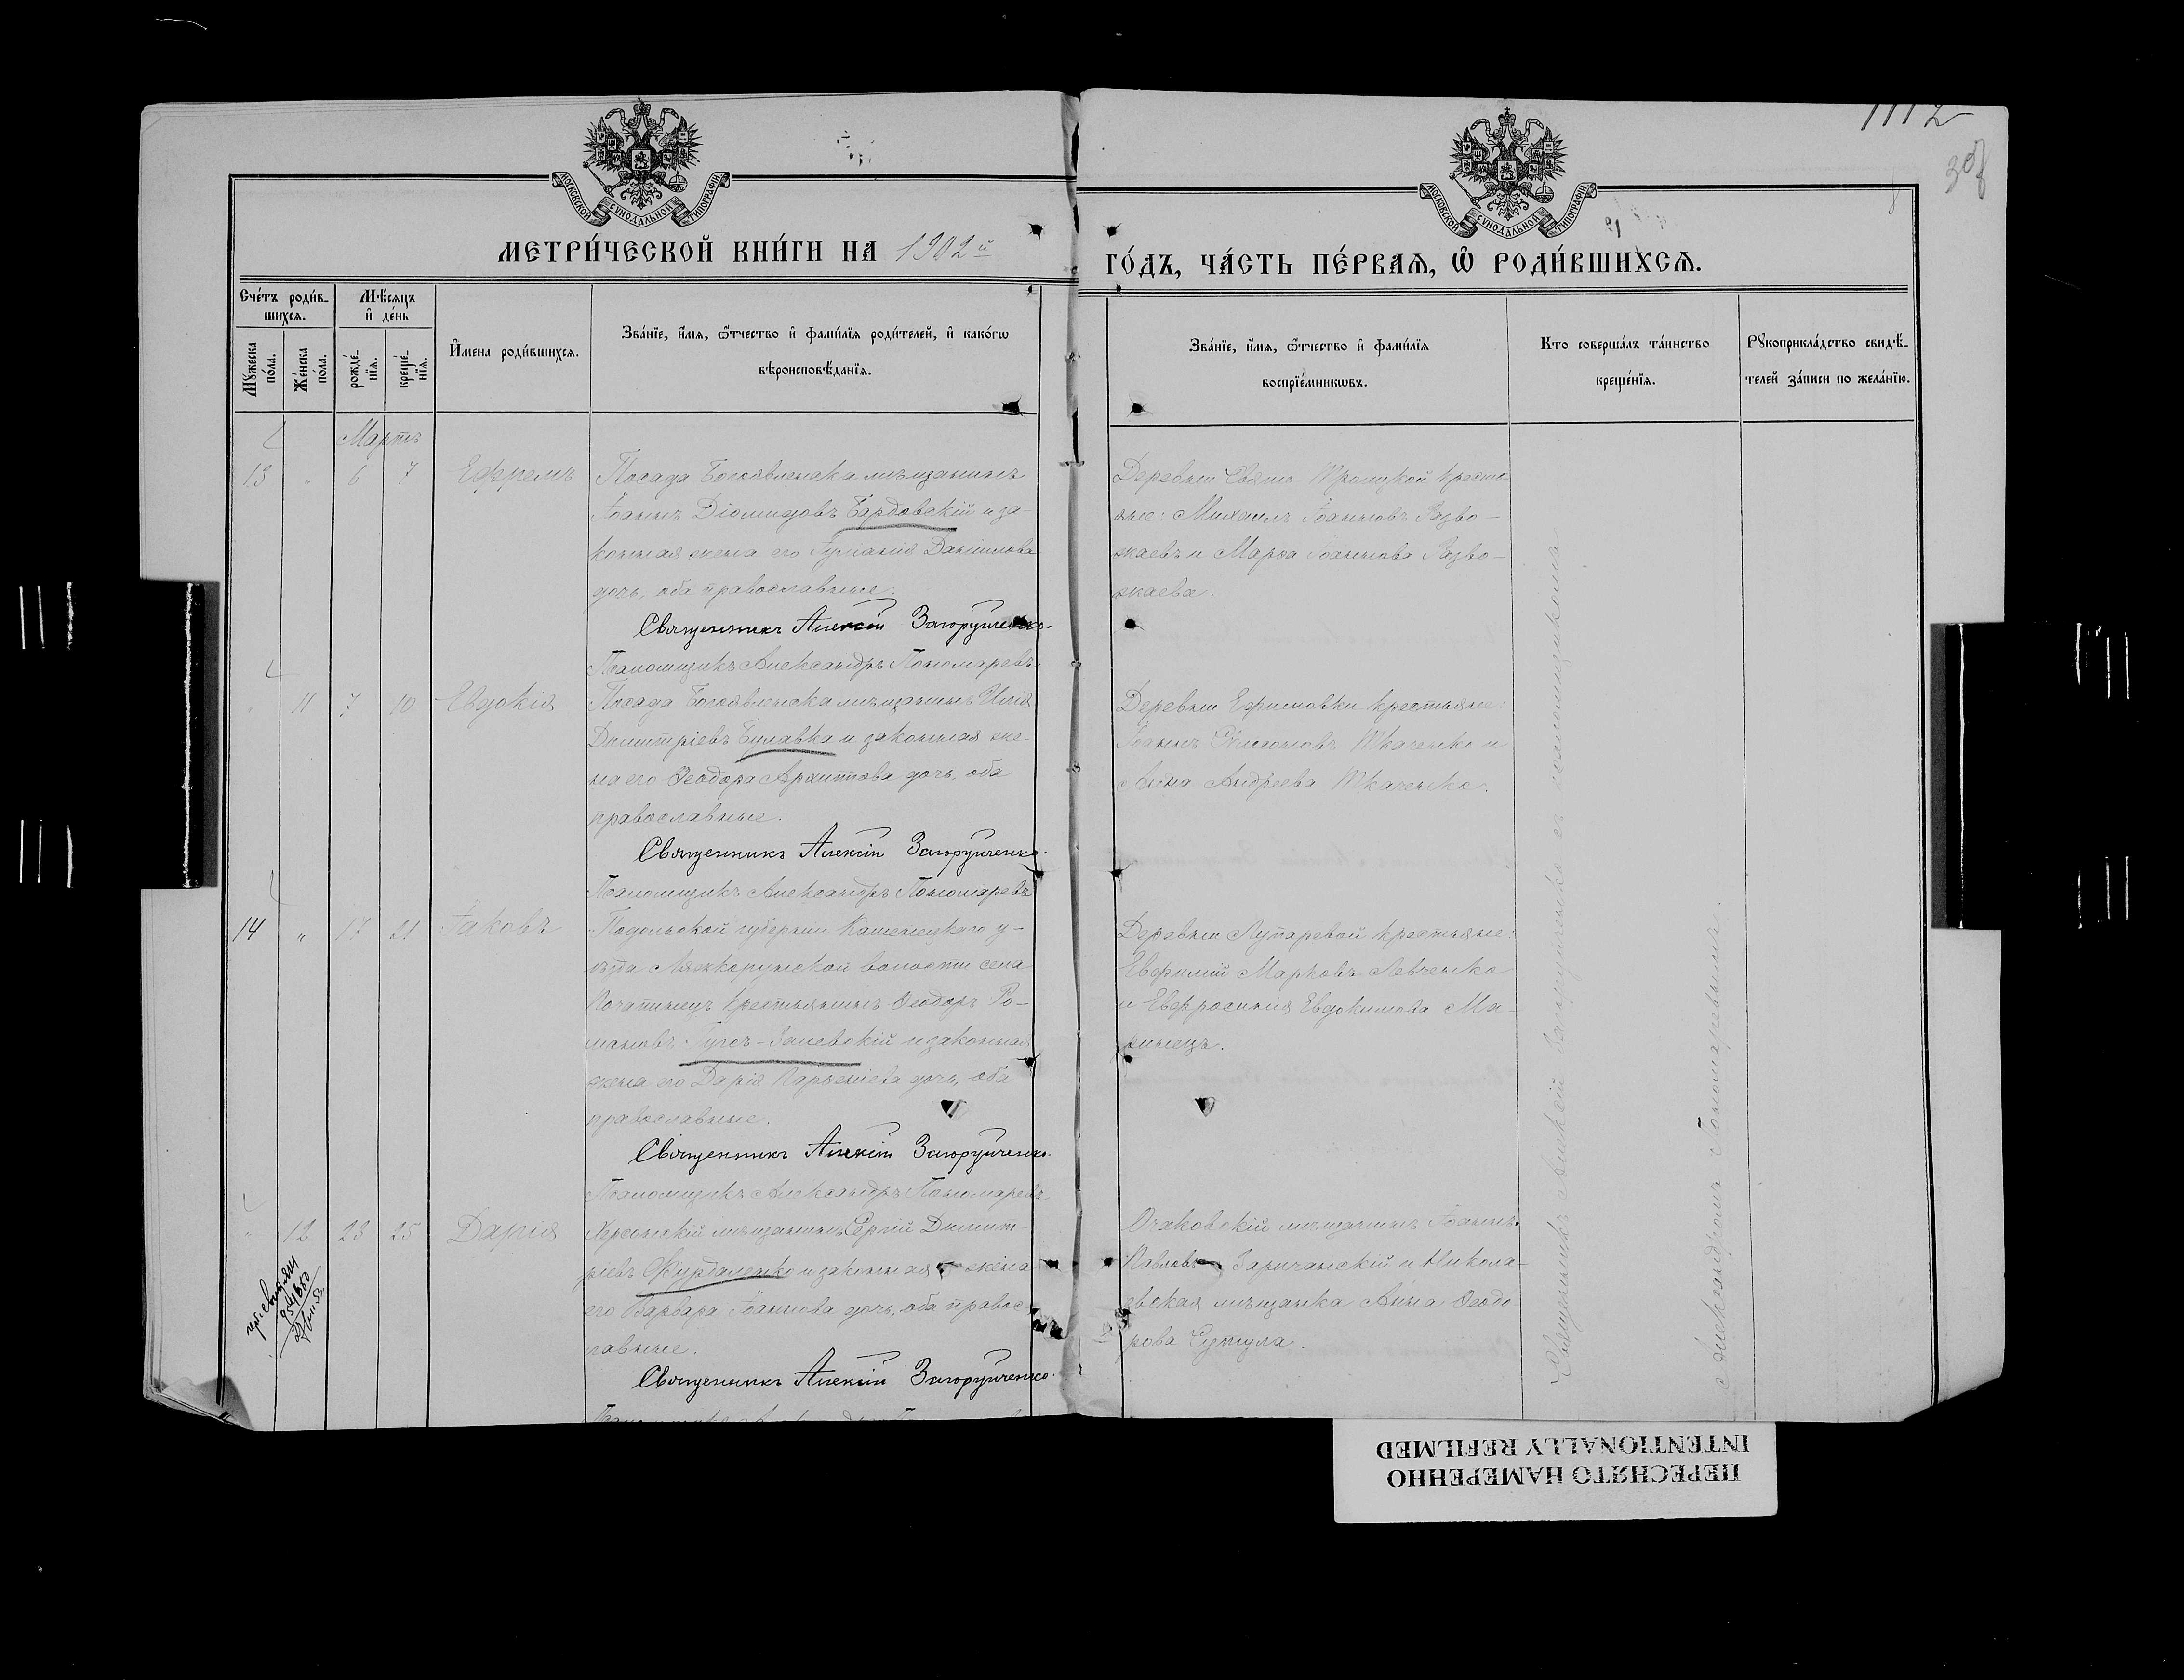 1112
308
МОСКОВСКОЙ СУНОДАЛЬНОЙ ТИПОГРАФІИ
МОСКОВСКОЙ СУНОДАЛЬНОЙ ТИПОГРАФІИ
МЕТРИ́ЧЕСКОЙ КНИ́ГИ НА 1902й
ГО́ДЪ, ЧА́СТЬ ПЕ́РВАЯ, Ѡ РОДИ́ВШИХСЯ.
Сче́тъ роди́в-
шихся.
Мѣ́сяцъ
и҆ де́нь
Му́жеска
по́ла.
Же́нска
по́ла.
рожде́-
нїя.
креще́-
нїя.
И҆мена роди́вшихся.
Зва́нїе, и҆́мя, ѻ҆́тчество и҆ фами́лїя роди́телей, и҆ како́гѡ
вѣроисповѣ́данїя.
Зва́нїе, и҆́мя, ѻ҆́тчество и҆ фами́лїя
воспрїе́мникѡвъ.
Кто соверша́лъ та́инство
креще́нїя.
Рукоприкла́дство свидѣ́-
телей за́писи по жела́нїю.
Мартъ
13 " 6 7 Ефремъ
Посада Богоявленска мѣщанинъ
Іоаннъ Діомидовъ Бардовскій и за-
конная жена его Іуліанія Даніилова
дочь, оба православные.
Священникъ Алексій Загоруйченко.
Псаломщикъ Александръ Пономаревъ
Деревни Свято Троицкой крестья
не: Михаилъ Іоанновъ Разво-
жаевъ и Марѳа Іоаннова Разво-
жаева.
" 11 7 10 Евдокія
Посада Богоявленска мѣщанинъ Илія
Димитріевъ Булавка и законная же-
на его Ѳеодора Архиппова дочь, оба
православные.
Священникъ Алексій Загоруйченко.
Псаломщикъ Александръ Пономаревъ
Деревни Ефимовки крестьяне:
Іоаннъ Ткаченко и
Анна Андреева Ткаченко.
14 " 17 21 Іаковъ
Подольской губерніи Каменецкаго у-
ѣзда Лянцкорунской волости села
крестьянинъ Ѳеодоръ Ро-
мановъ и законная
жена его Дарія Парѳеніева дочь, оба
православные.
Священникъ Алексій Загоруйченко.
Псаломщикъ Александръ Пономаревъ
Деревни Лупаревой крестьяне:
Евфимій Марковъ Левченко
и Евфросинія Евдокимова Ма-
ринецъ.
" 12 23 25 Дарія
Херсонскій мѣщанинъ Сергій Димит-
ріевъ Фурдаленко и законная жена
его Варвара Іоаннова дочь, оба правос-
лавные.
Священникъ Алексій Загоруйченко.
Очаковскій мѣщанинъ Іоаннъ
Павловъ Заричанскій и Никола-
евская мѣщанка Анна Ѳеодо-
рова
Священникъ Алексій Загоруйченко съ псаломщикомъ
Александромъ Пономаревымъ.
ПЕРЕСНЯТО НАМЕРЕННО
INTENTIONALLY REFILMED